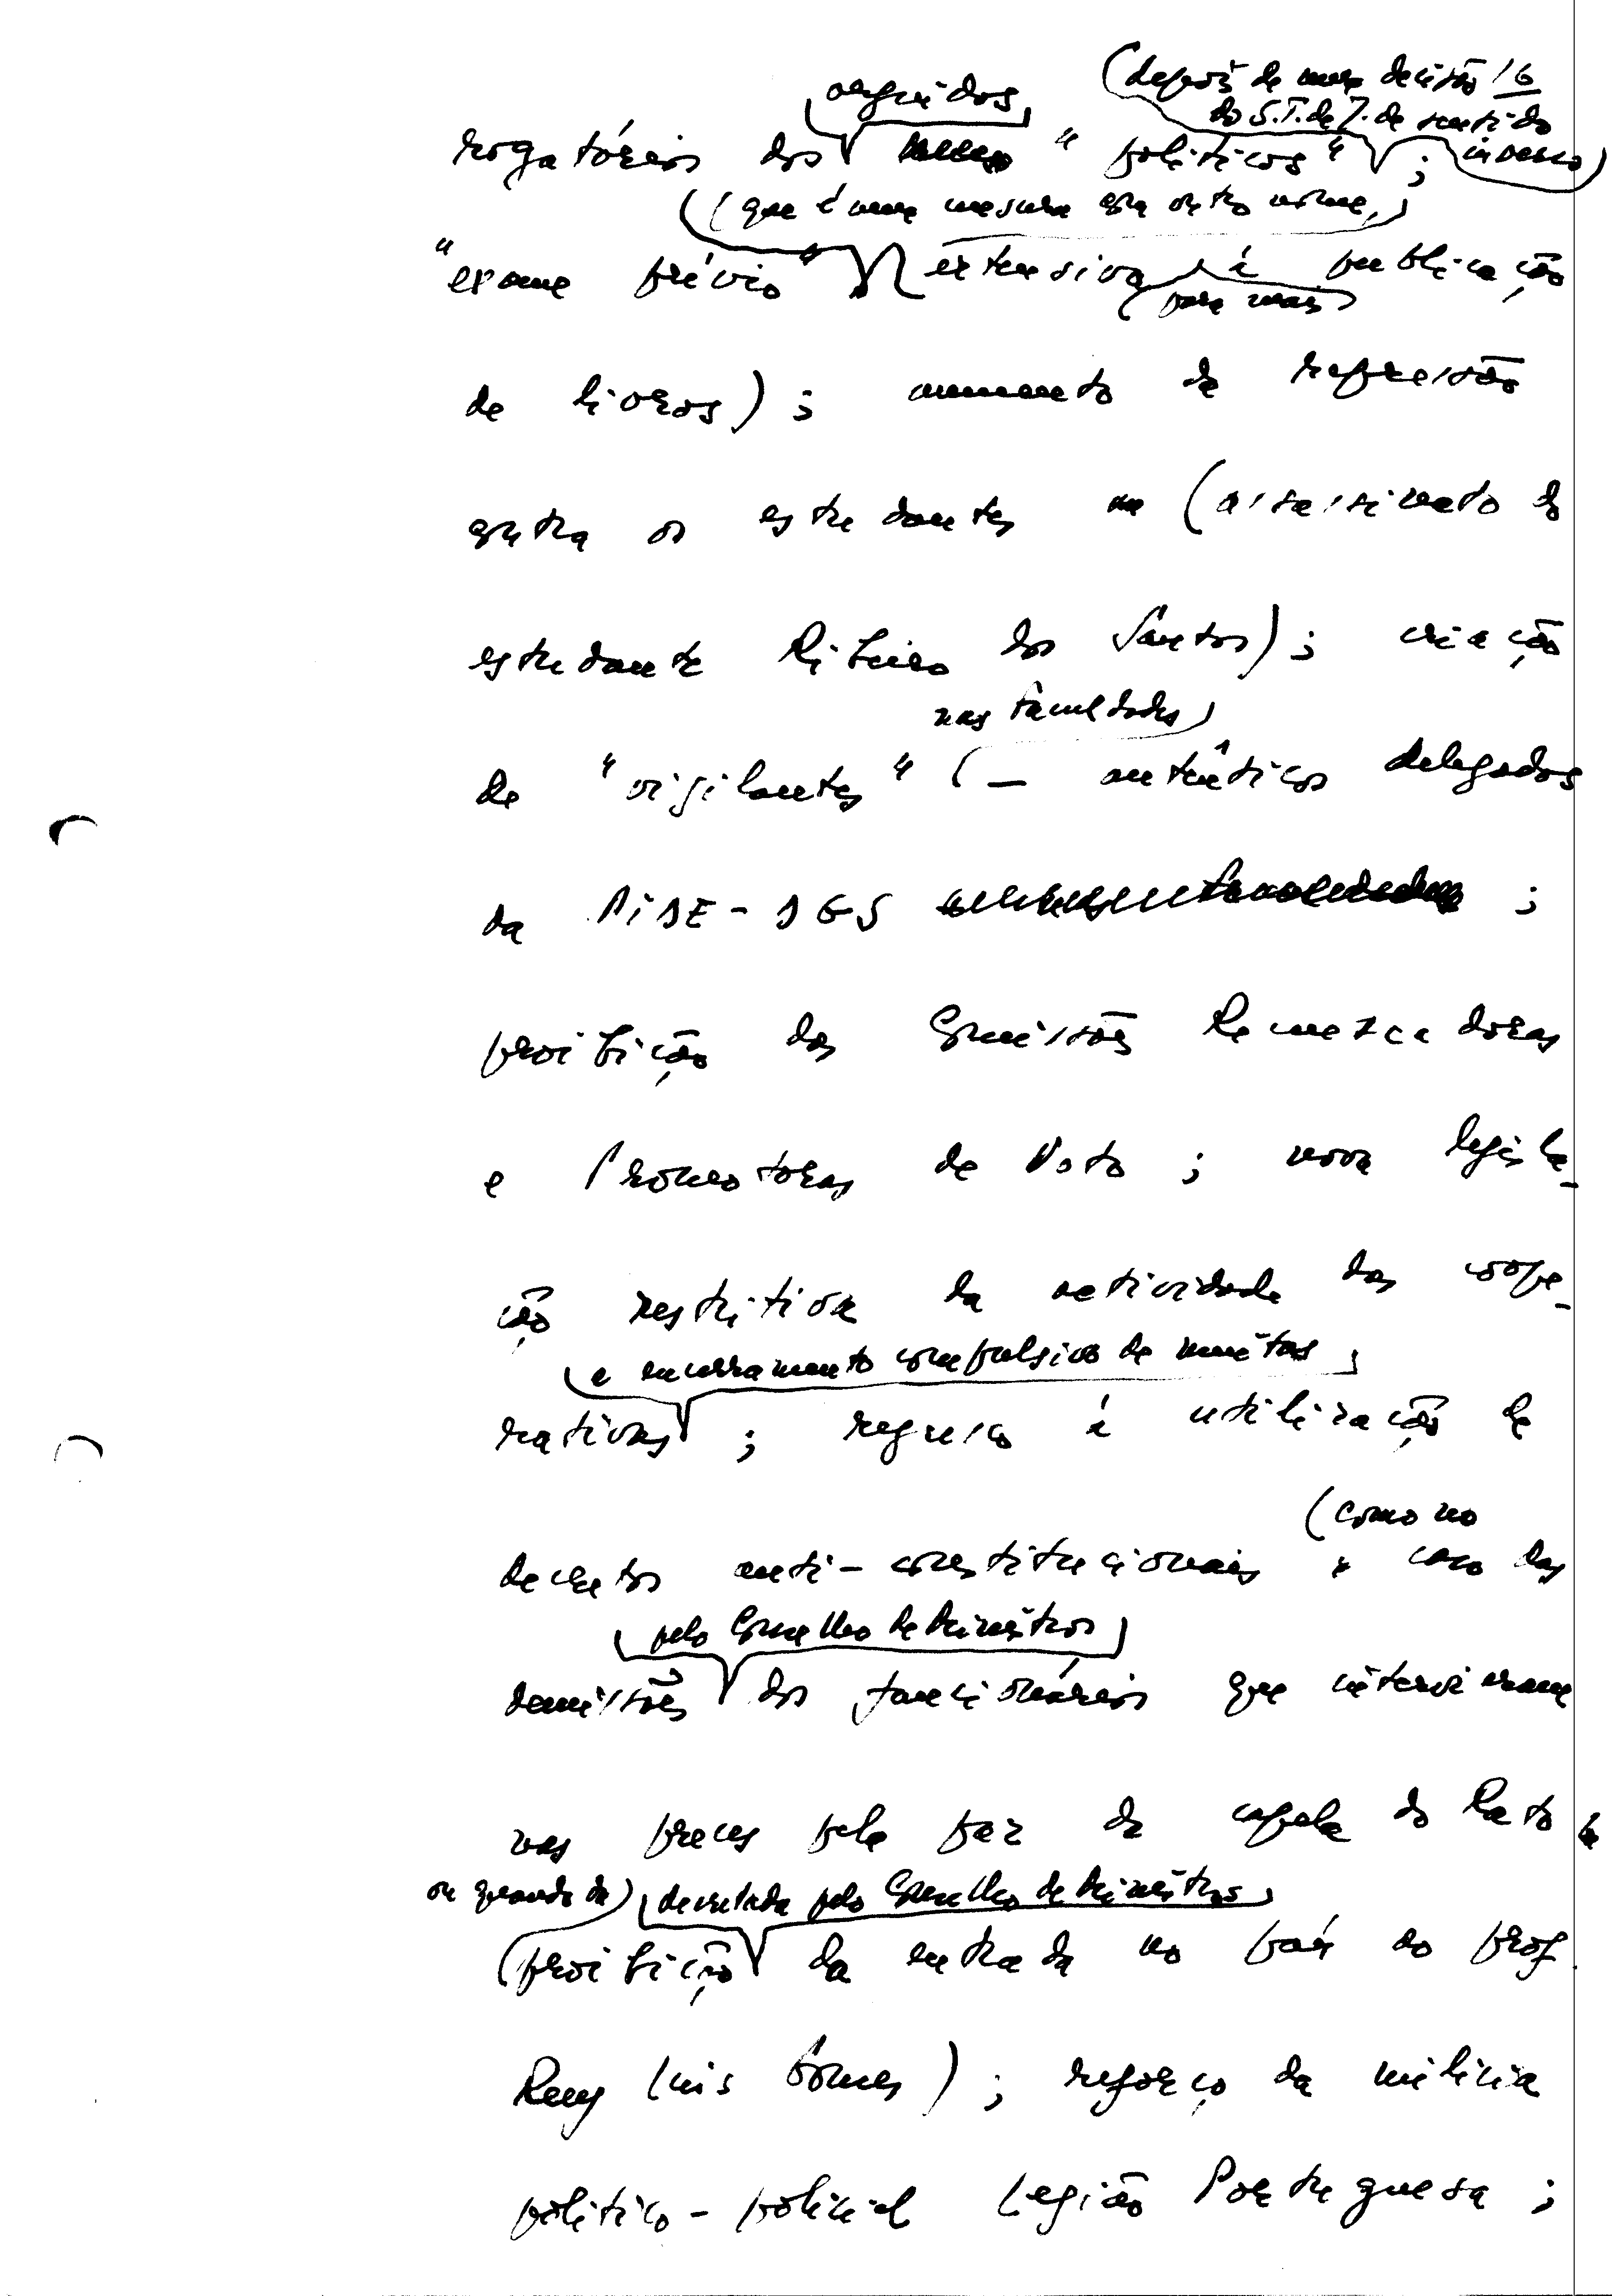 arguidos
(depois de uma decisão 16
do S.T. de J. de sentido
inverso)
rogatórios dos "políticos" ;
(que é uma mesura com outro nome,)
"exame prévio" extensiva à publicação
(para mais)
de livros) ; aumento da repressão
contra os estudantes (assassinato do
estudante Ribeiro dos Santos) ; criação
nas Faculdades
de "vigilantes" (— autênticos delegados
da PIDE - DGS ;
proibição das Comissões Recenseadoras
e Promotoras de Voto ; nova legisla-
ção restritiva da actividade das coope-
e encerramento compulsivo de muitas
rativas ; regresso à utilização de
(como no
decretos anti-constitucionais caso das
pelo Conselho de Ministros
demissões dos funcionários que intervieram
nas preces pela paz da capela do Rato
ou quando da decretada pelo Conselho de Ministros
(proibição da entrada no país do prof.
Ruy Luís Gomes) ; reforço da milícia
político-policial Legião Portuguesa ;